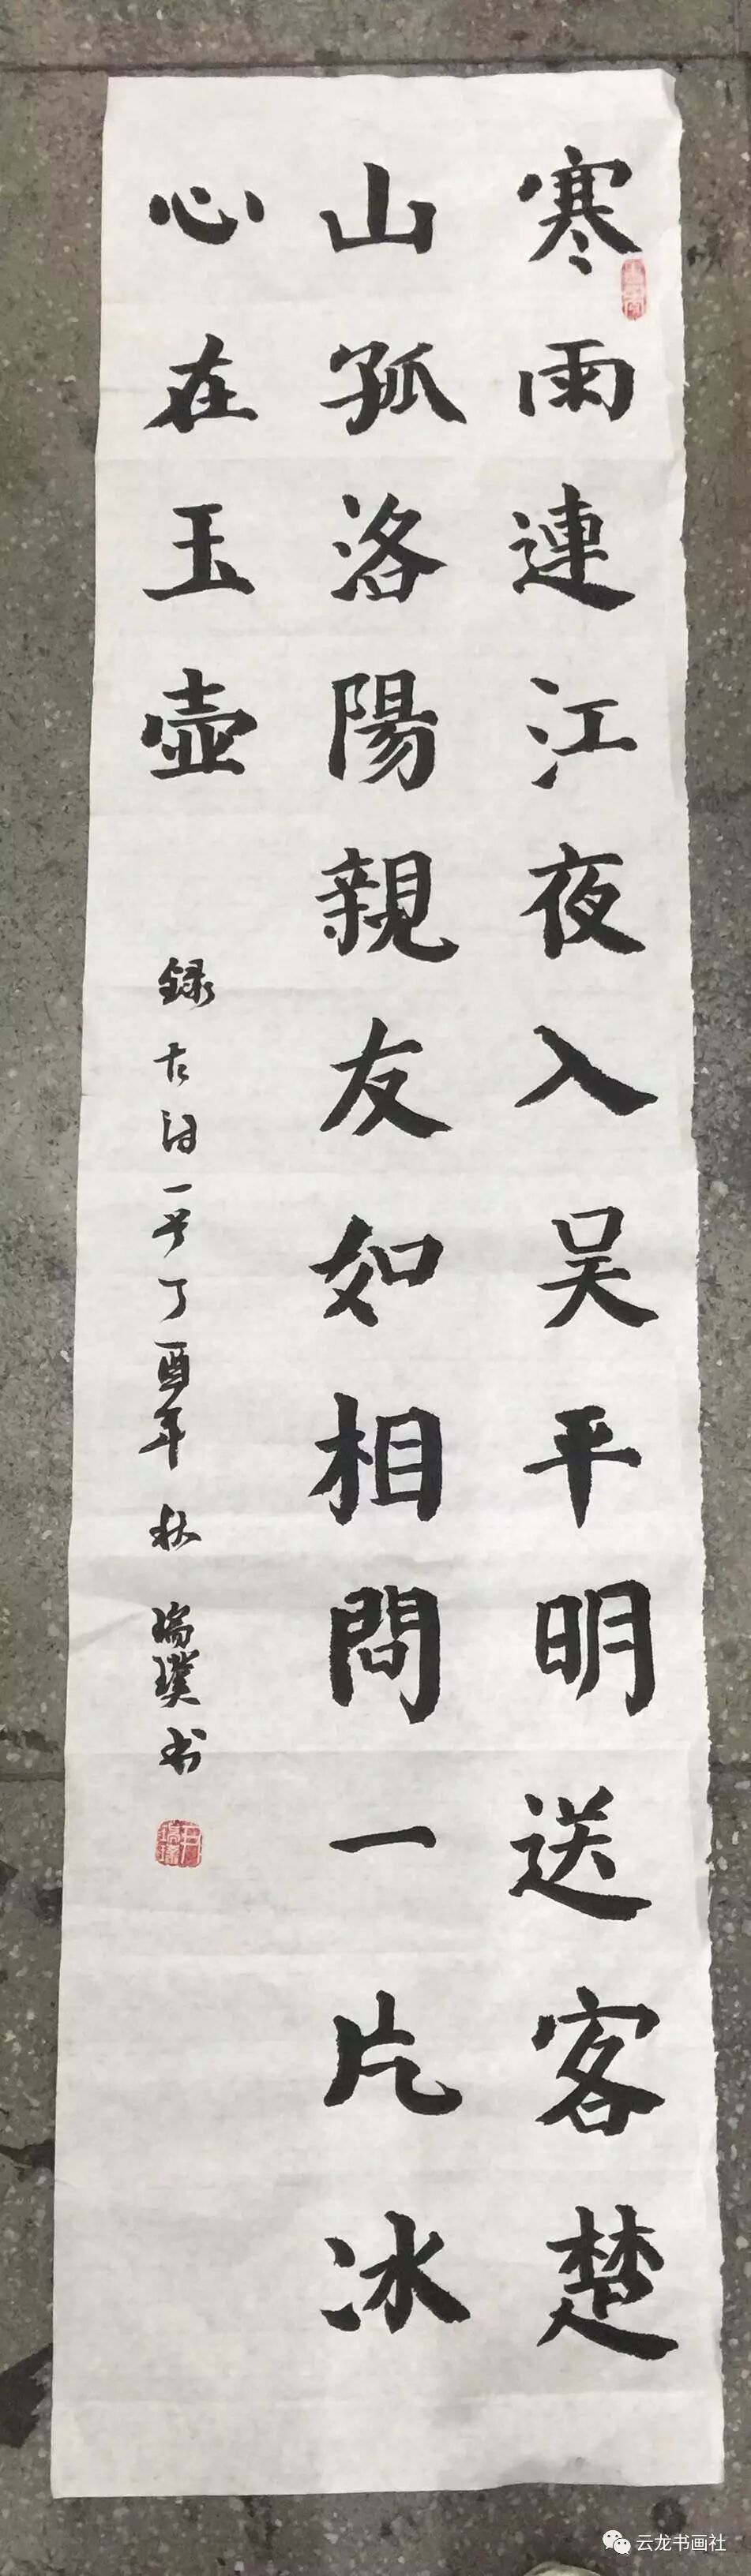 寒雨連江夜入吴平明送客楚
山孤洛陽親友如相問一片冰
心在玉壺
録古詩一首丁酉年秋瑞璞书
云龙书画社